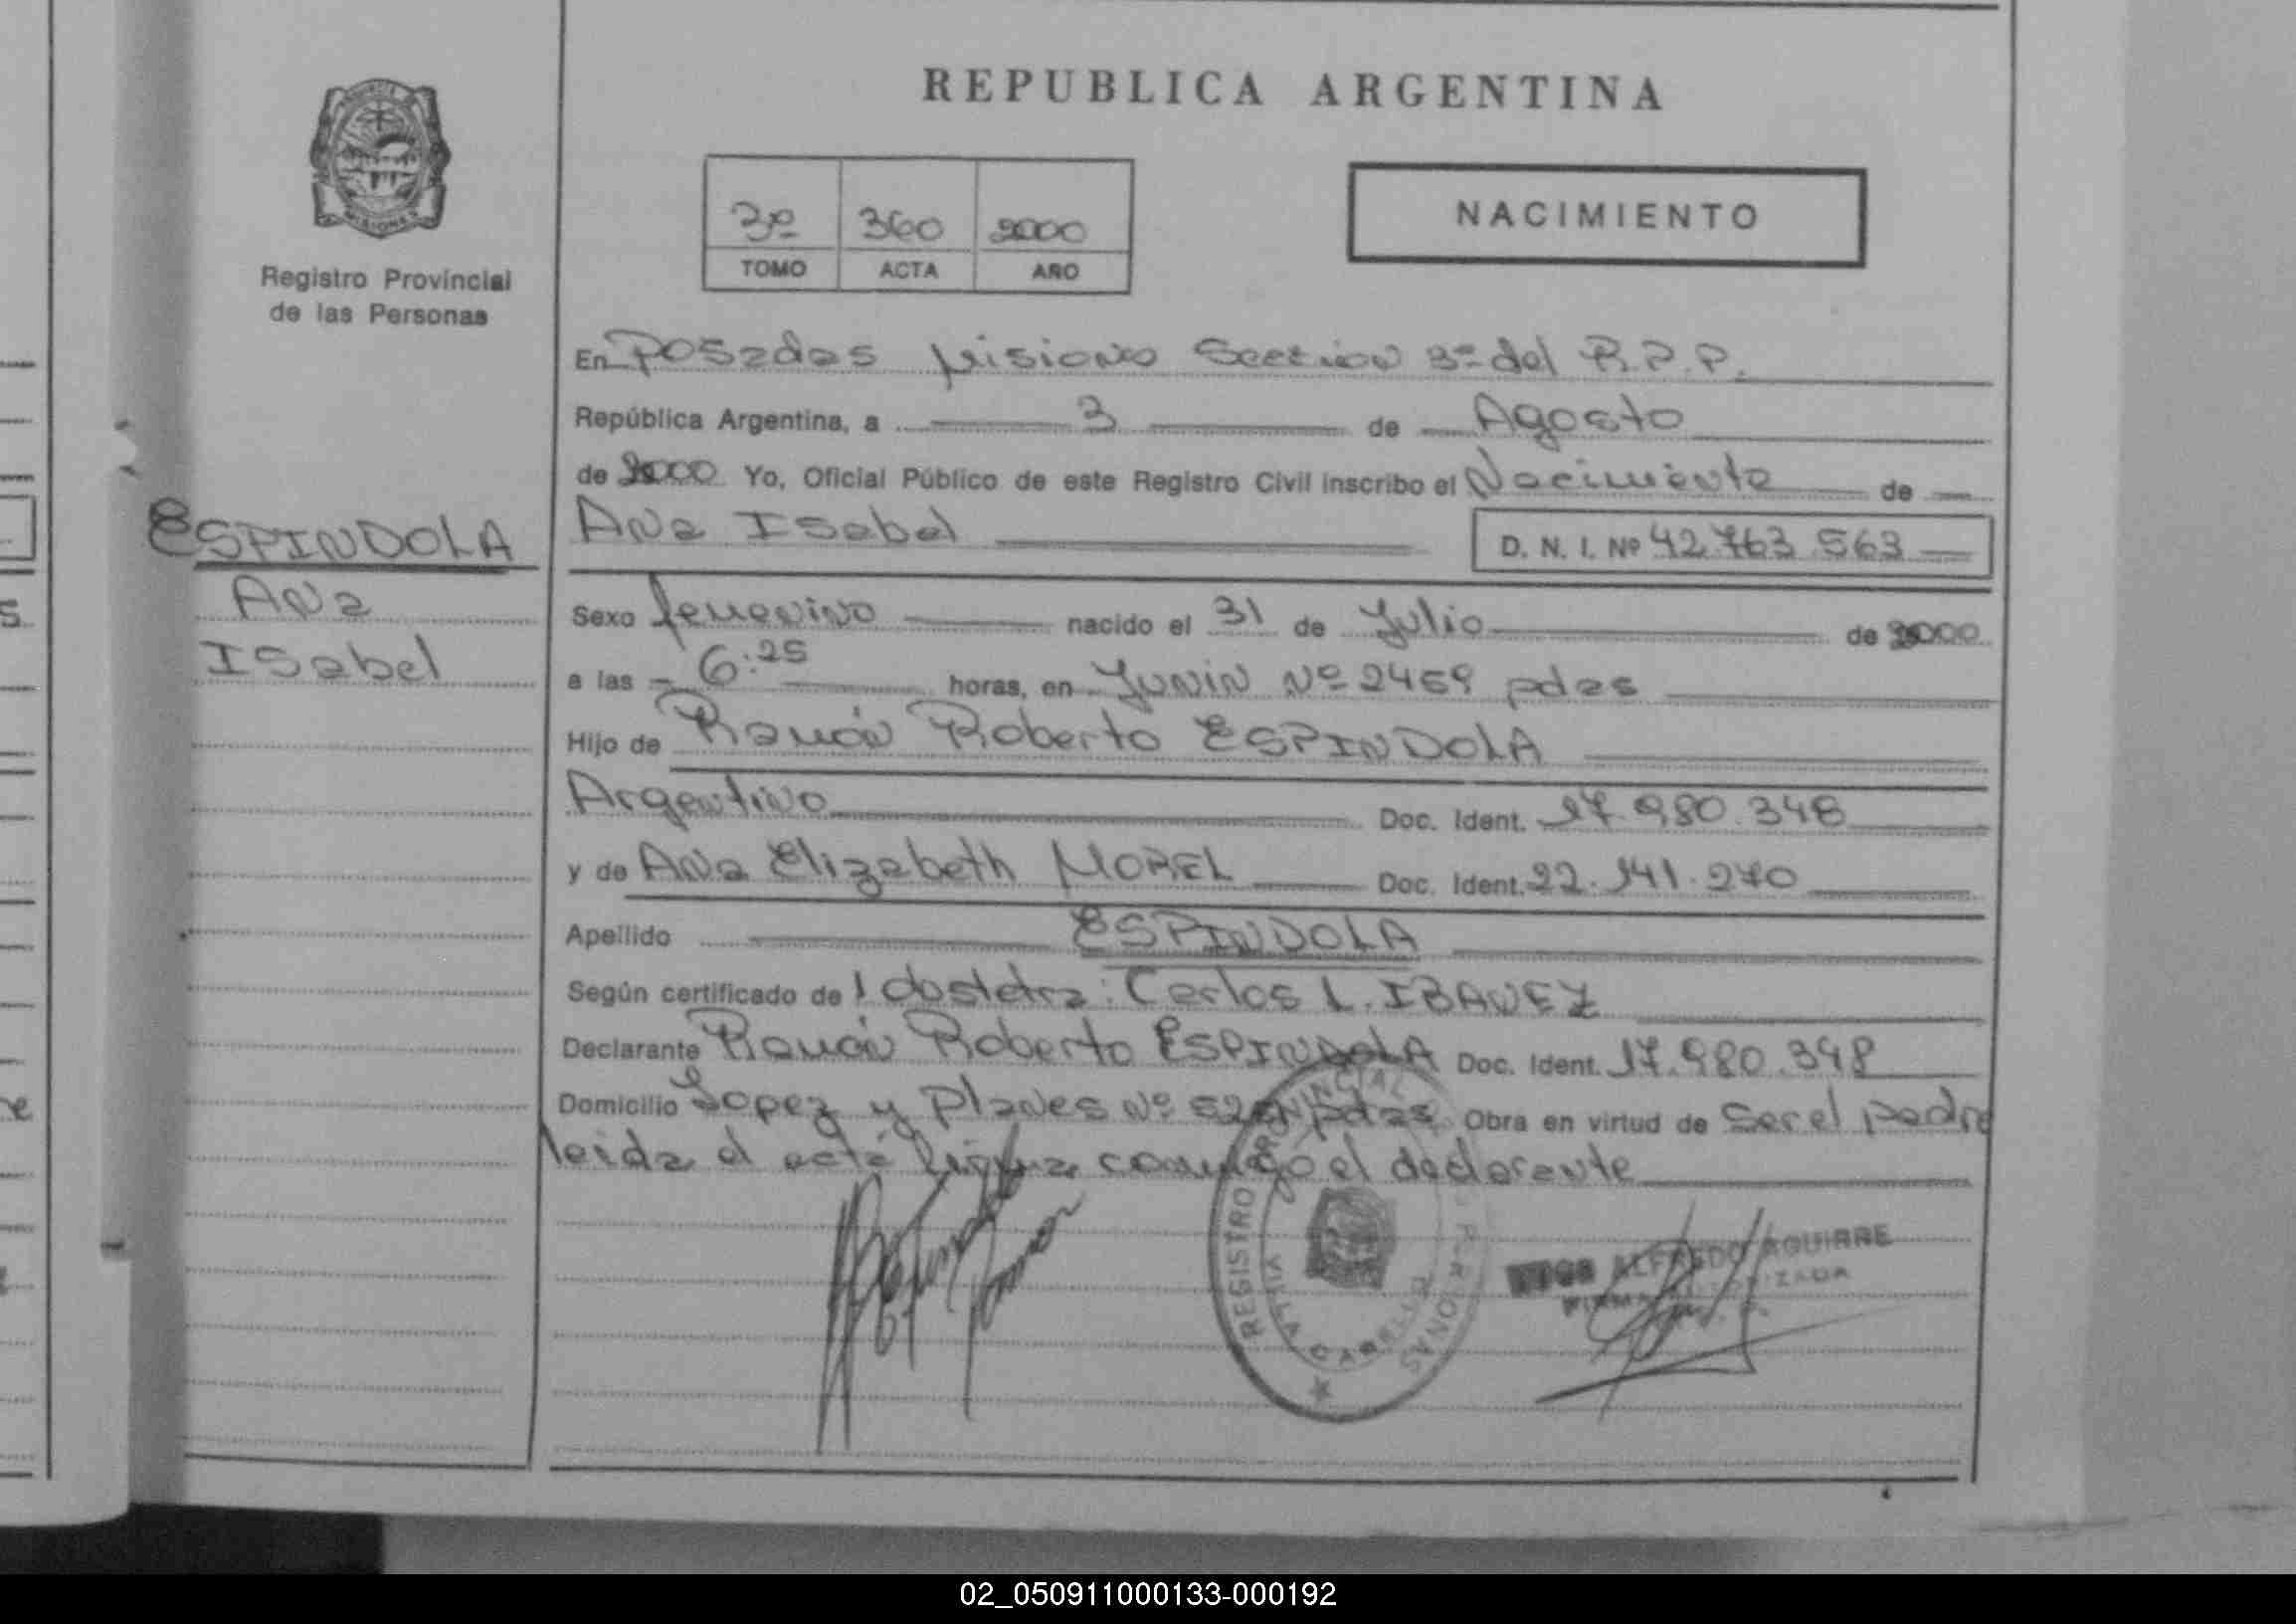 REPUBLICA ARGENTINA
MISIONES
Registro Provincial
de las Personas
3º 360 2000
TOMO ACTA AÑO
NACIMIENTO
ESPINDOLA
Ana
Isabel
En Posadas Misiones Sección 3º del R.P.P.
República Argentina, a 3 de Agosto
de 2000 Yo, Oficial Público de este Registro Civil inscribo el Nacimiento de
Ana Isabel D. N. I. Nº 42.763.563
Sexo femenino nacido el 31 de Julio de 2000
a las 6:25 horas, en Junin Nº 2469 pdas
Hijo de Ramón Roberto ESPINDOLA
Argentino Doc. Ident. 17.980.348
y de Ana Elizabeth MOREL Doc. Ident. 22.141.270
Apellido ESPINDOLA
Según certificado de l obstetra: Carlos L. IBAÑEZ
Declarante Ramón Roberto ESPINDOLA Doc. Ident. 17.980.348
Domicilio Lopez y Planes Nº pdas Obra en virtud de ser el padre
leida el acta firma conmigo el declarante
REGISTRO PROVINCIAL PERSONAS
ALFREDO AGUIRRE
FIRMA AUTORIZADA
02_050911000133-000192